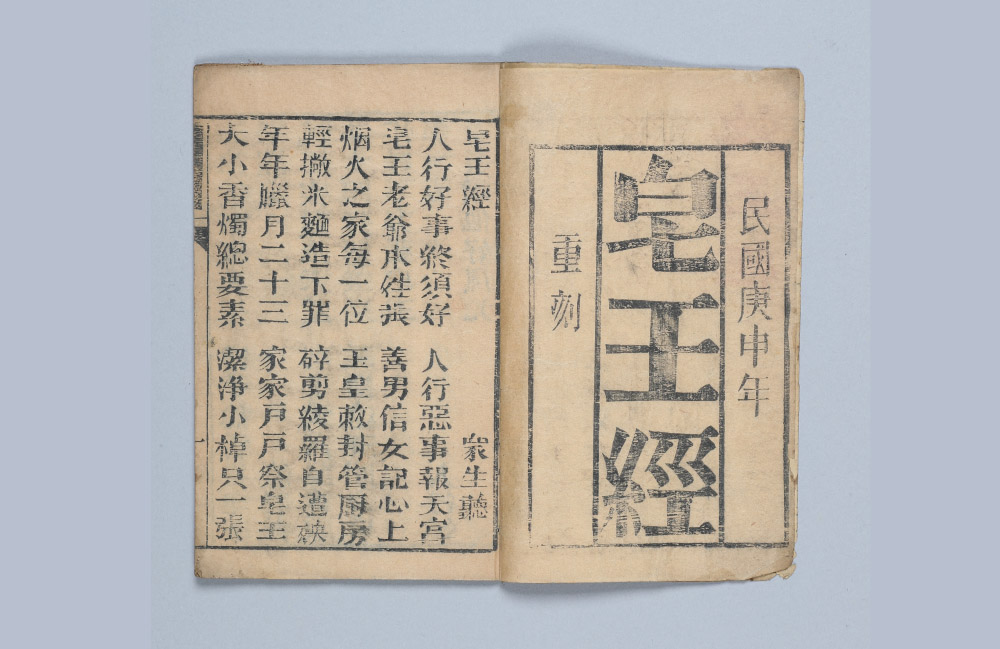 民國庚申年
皂王經
重刻
皂王經　衆生聽
人行好事終須好　人行惡事報天宮
皂王老爺本姓張　善男信女記心上
烟火之家每一位　玉皇敕封管厨房
輕撇米麵造下罪　碎剪綾羅自遭殃
年年臘月二十三　家家戸戸祭皂王
大小香燭總要素　潔淨小棹只一張
一